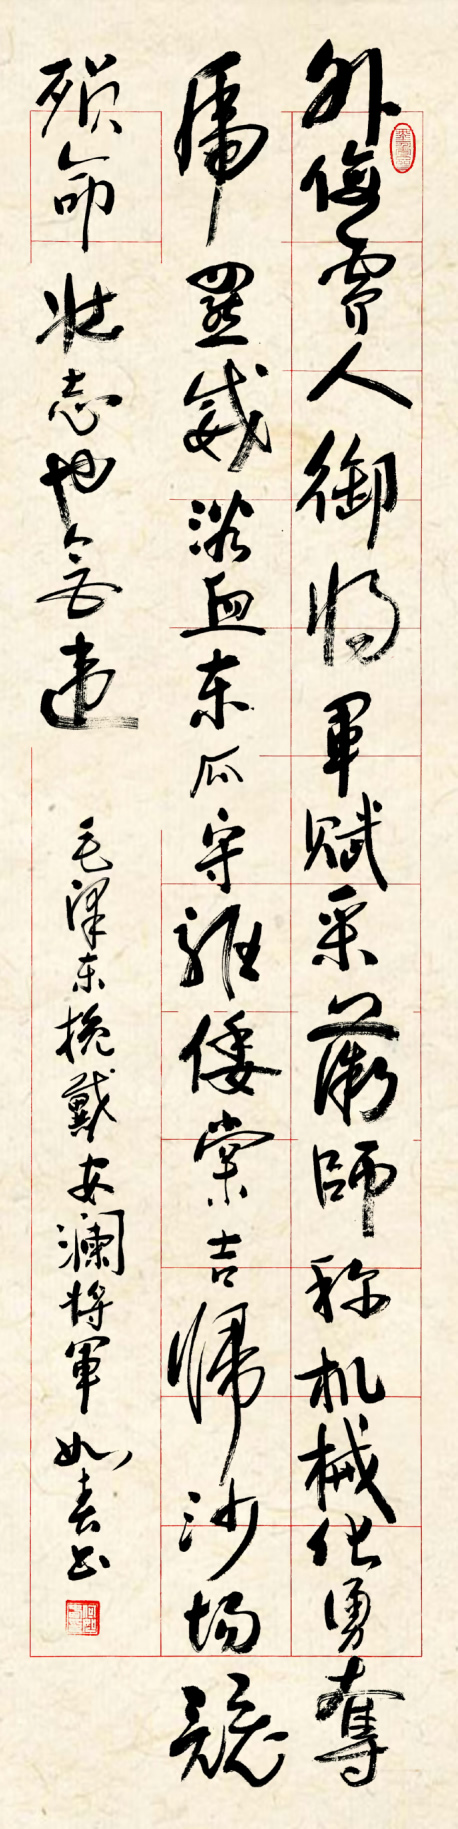 外侮需人御将軍賦采薇師称机械化勇奪
虎羆威浴血东瓜守驱倭棠吉歸沙场竟
殒命壮志也無违
毛泽东挽戴安澜将軍 如春书